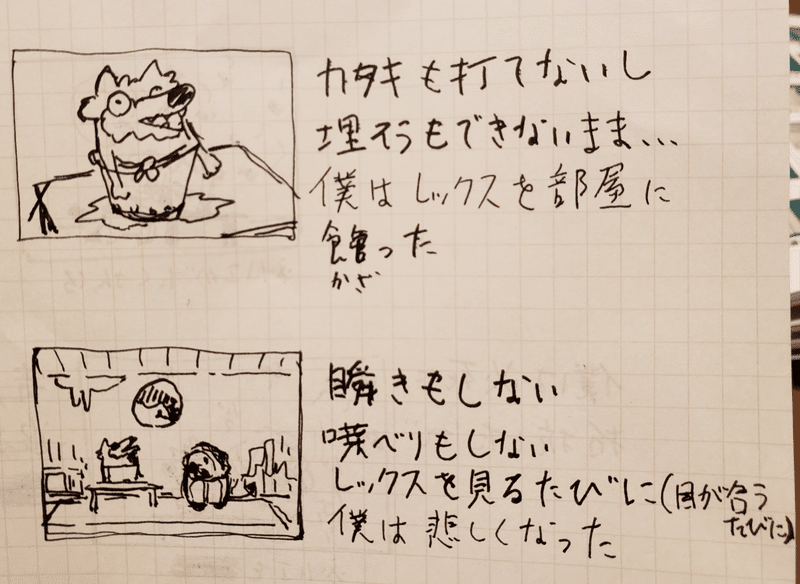 カタキも打てないし
埋そうもできないまま...
僕はレックスを部屋に
飾った
かざ
瞬きもしない
喋べりもしない
レックスを見るたびに(目が合う
たびに)
僕は悲しくなった